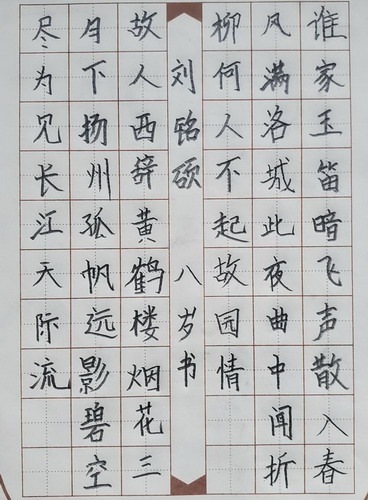 谁家玉笛暗飞声散入春
风满洛城此夜曲中闻折
柳何人不起故园情
刘铭 八岁书
故人西辞黄鹤楼烟花三
月下扬州孤帆远影碧空
尽为见长江天际流